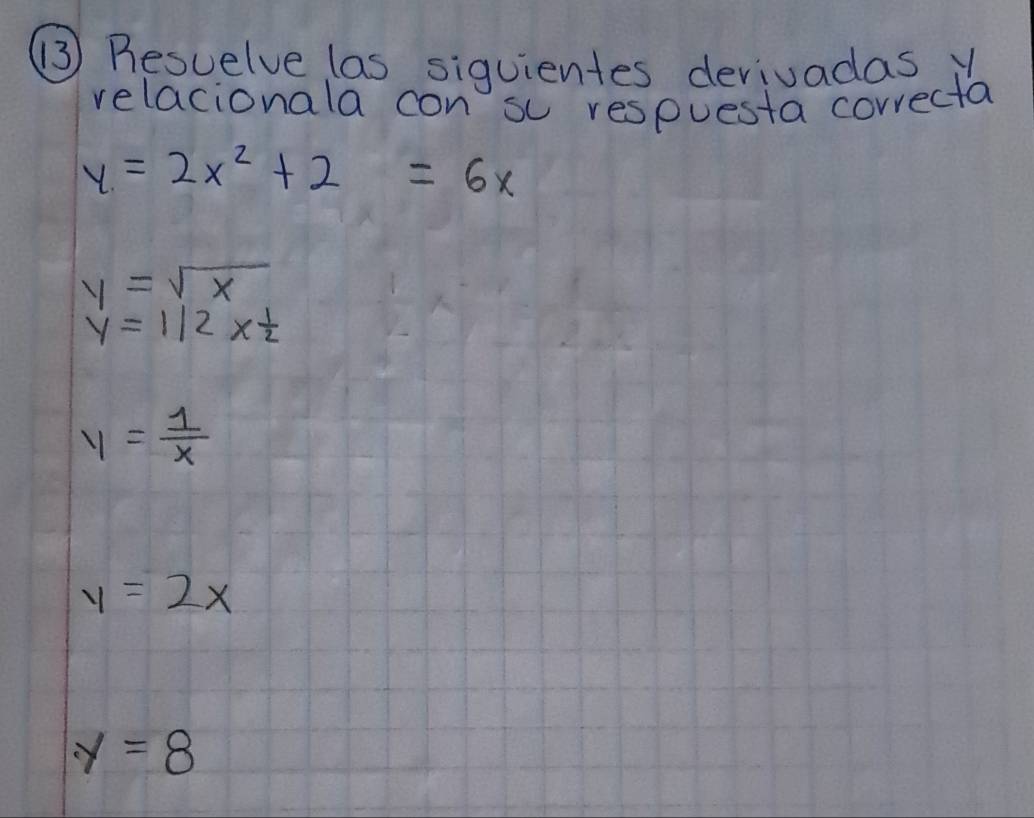 13 Resuelve las siguientes derivadas y
relacionala con su respuesta correcta
y = 2x² + 2 = 6x
y = √x
y = 1/2 x ½
y = 1/x
y = 2x
y = 8